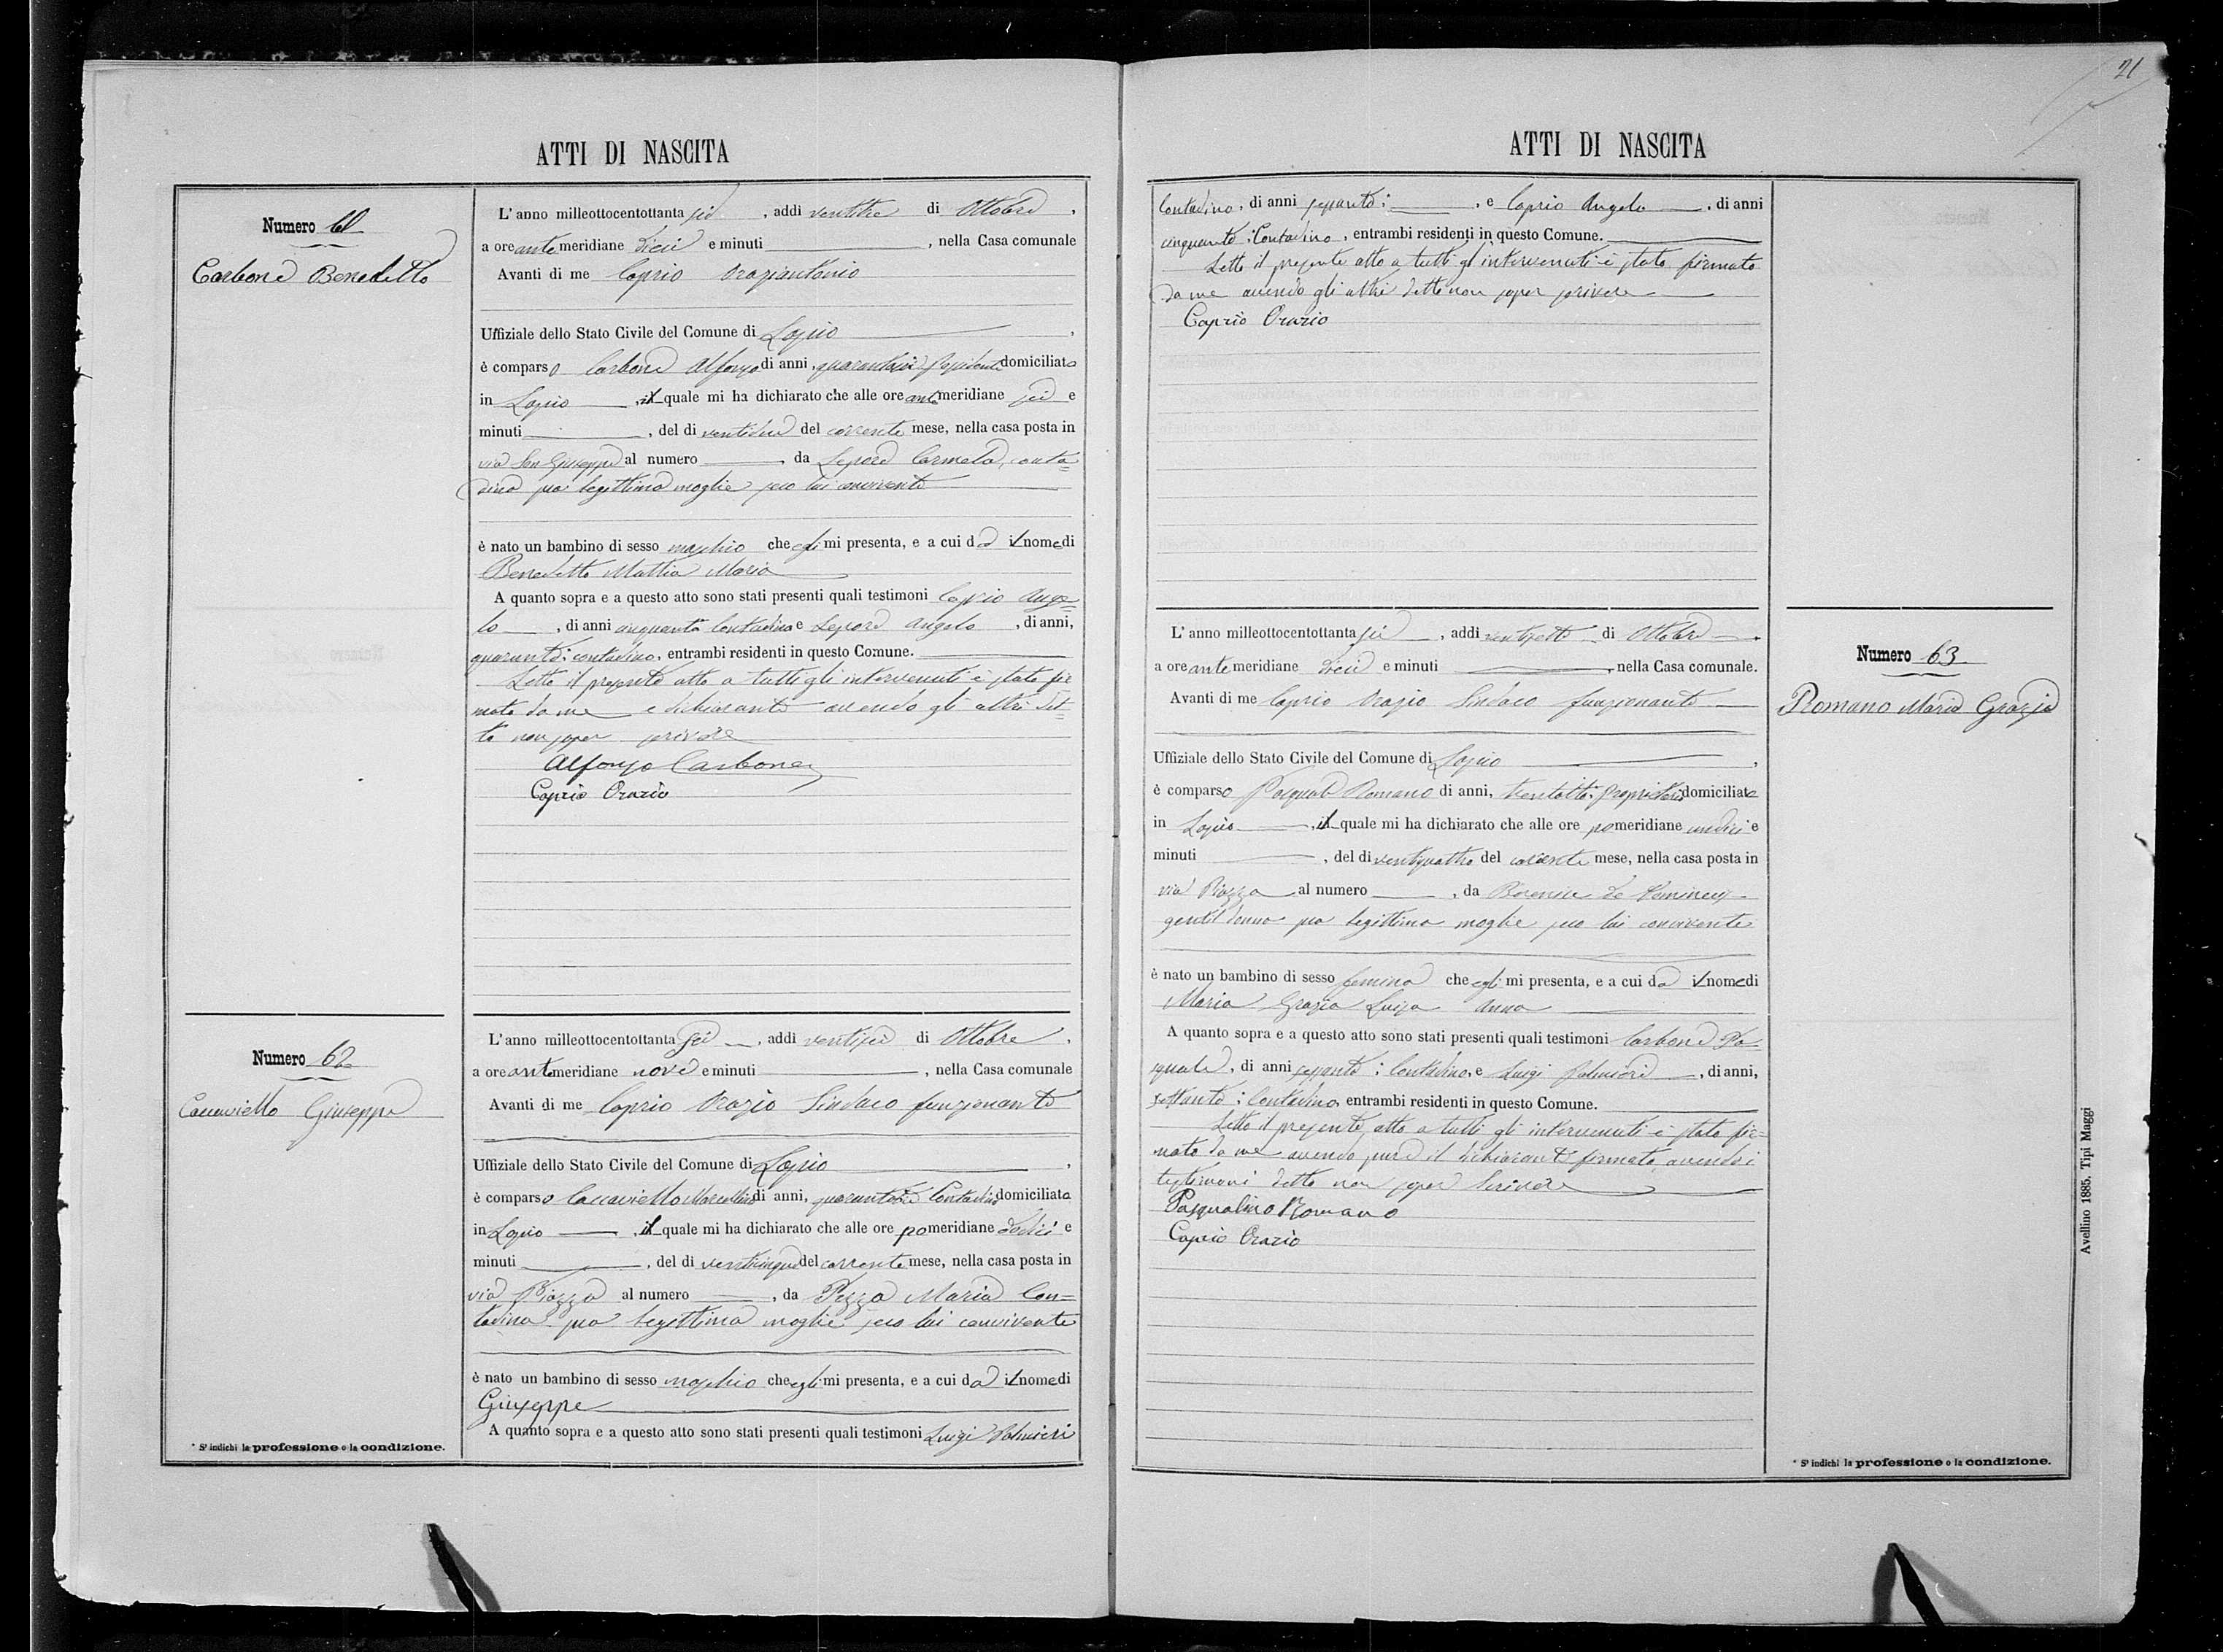 21
ATTI DI NASCITA
Numero 61
Carbone Benedetto
L'anno milleottocentottanta sei, addì ventitre di Ottobre,
a ore ante meridiane dieci e minuti, nella Casa comunale
Avanti di me Caprio Oraziantonio
Uffiziale dello Stato Civile del Comune di Lapio,
è comparso Carbone Alfonso di anni, possidente domiciliato
in Lapio, il quale mi ha dichiarato che alle ore ante meridiane sei e
minuti, del dì ventidue del corrente mese, nella casa posta in
via San Giuseppe al numero, da Lepore Carmela, conta=
dina sua legittima moglie seco lui convivente
è nato un bambino di sesso maschio che egli mi presenta, e a cui dà il nome di
Benedetto Mattia Maria
A quanto sopra e a questo atto sono stati presenti quali testimoni Caprio Ange=
lo, di anni cinquanta Contadino e Lepore Angelo, di anni,
quaranta: contadino, entrambi residenti in questo Comune.
Letto il presente atto a tutti gli intervenuti è stato fir
mato da me e dichiarante avendo gli altri det=
to non saper scrivere
Alfonso Carbone
Caprio Orazio
Numero 62
Caccaviello Giuseppe
L'anno milleottocentottanta Sei, addì ventisei di Ottobre,
a ore ante meridiane nove e minuti, nella Casa comunale
Avanti di me Caprio Orazio Sindaco funzionante
Uffiziale dello Stato Civile del Comune di Lapio,
è comparso Caccaviello Marcellino di anni, Contadino domiciliato
in Lapio, il quale mi ha dichiarato che alle ore pomeridiane dodici e
minuti, del dì venticinque del corrente mese, nella casa posta in
via Piazza al numero, da Pezza Maria Con=
tadina sua legittima moglie seco lui convivente
è nato un bambino di sesso maschio che egli mi presenta, e a cui dà il nome di
Giuseppe
A quanto sopra e a questo atto sono stati presenti quali testimoni Luigi Palmieri
* S'indichi la professione o la condizione.
ATTI DI NASCITA
Contadino, di anni sessanta:, e Caprio Angelo, di anni
cinquanta: Contadino, entrambi residenti in questo Comune.
Letto il presente atto a tutti gl'intervenuti è stato firmato
da me avendo gli altri detto non saper scrivere
Caprio Orazio
Numero 63
Romano Maria Grazia
L'anno milleottocentottanta sei, addì ventisette di Ottobre.
a ore ante meridiane dieci e minuti, nella Casa comunale.
Avanti di me Caprio Orazio Sindaco funzionante
Uffiziale dello Stato Civile del Comune di Lapio,
è comparso Pasquale Romano di anni, trentotto: proprietario domiciliato
in Lapio, il quale mi ha dichiarato che alle ore pomeridiane undici e
minuti, del dì ventiquattro del corrente mese, nella casa posta in
via Piazza al numero, da Berenice de
gentil donna sua legittima moglie seco lui convivente
è nato un bambino di sesso femina che egli mi presenta, e a cui dà il nome di
Maria Grazia Luisa Anna
A quanto sopra e a questo atto sono stati presenti quali testimoni Carbone Pa=
squale, di anni sessanta: Contadino, e Luigi Palmieri, di anni,
settanta: Contadino entrambi residenti in questo Comune.
Letto il presente atto a tutti gli intervenuti è stato fir=
mato da me avendo pure il dichiarante firmato, avendo i
testimoni detto non saper Scrivere
Pasqualino Romano
Caprio Orazio
* S'indichi la professione o la condizione.
Avellino 1885. Tipi Maggi